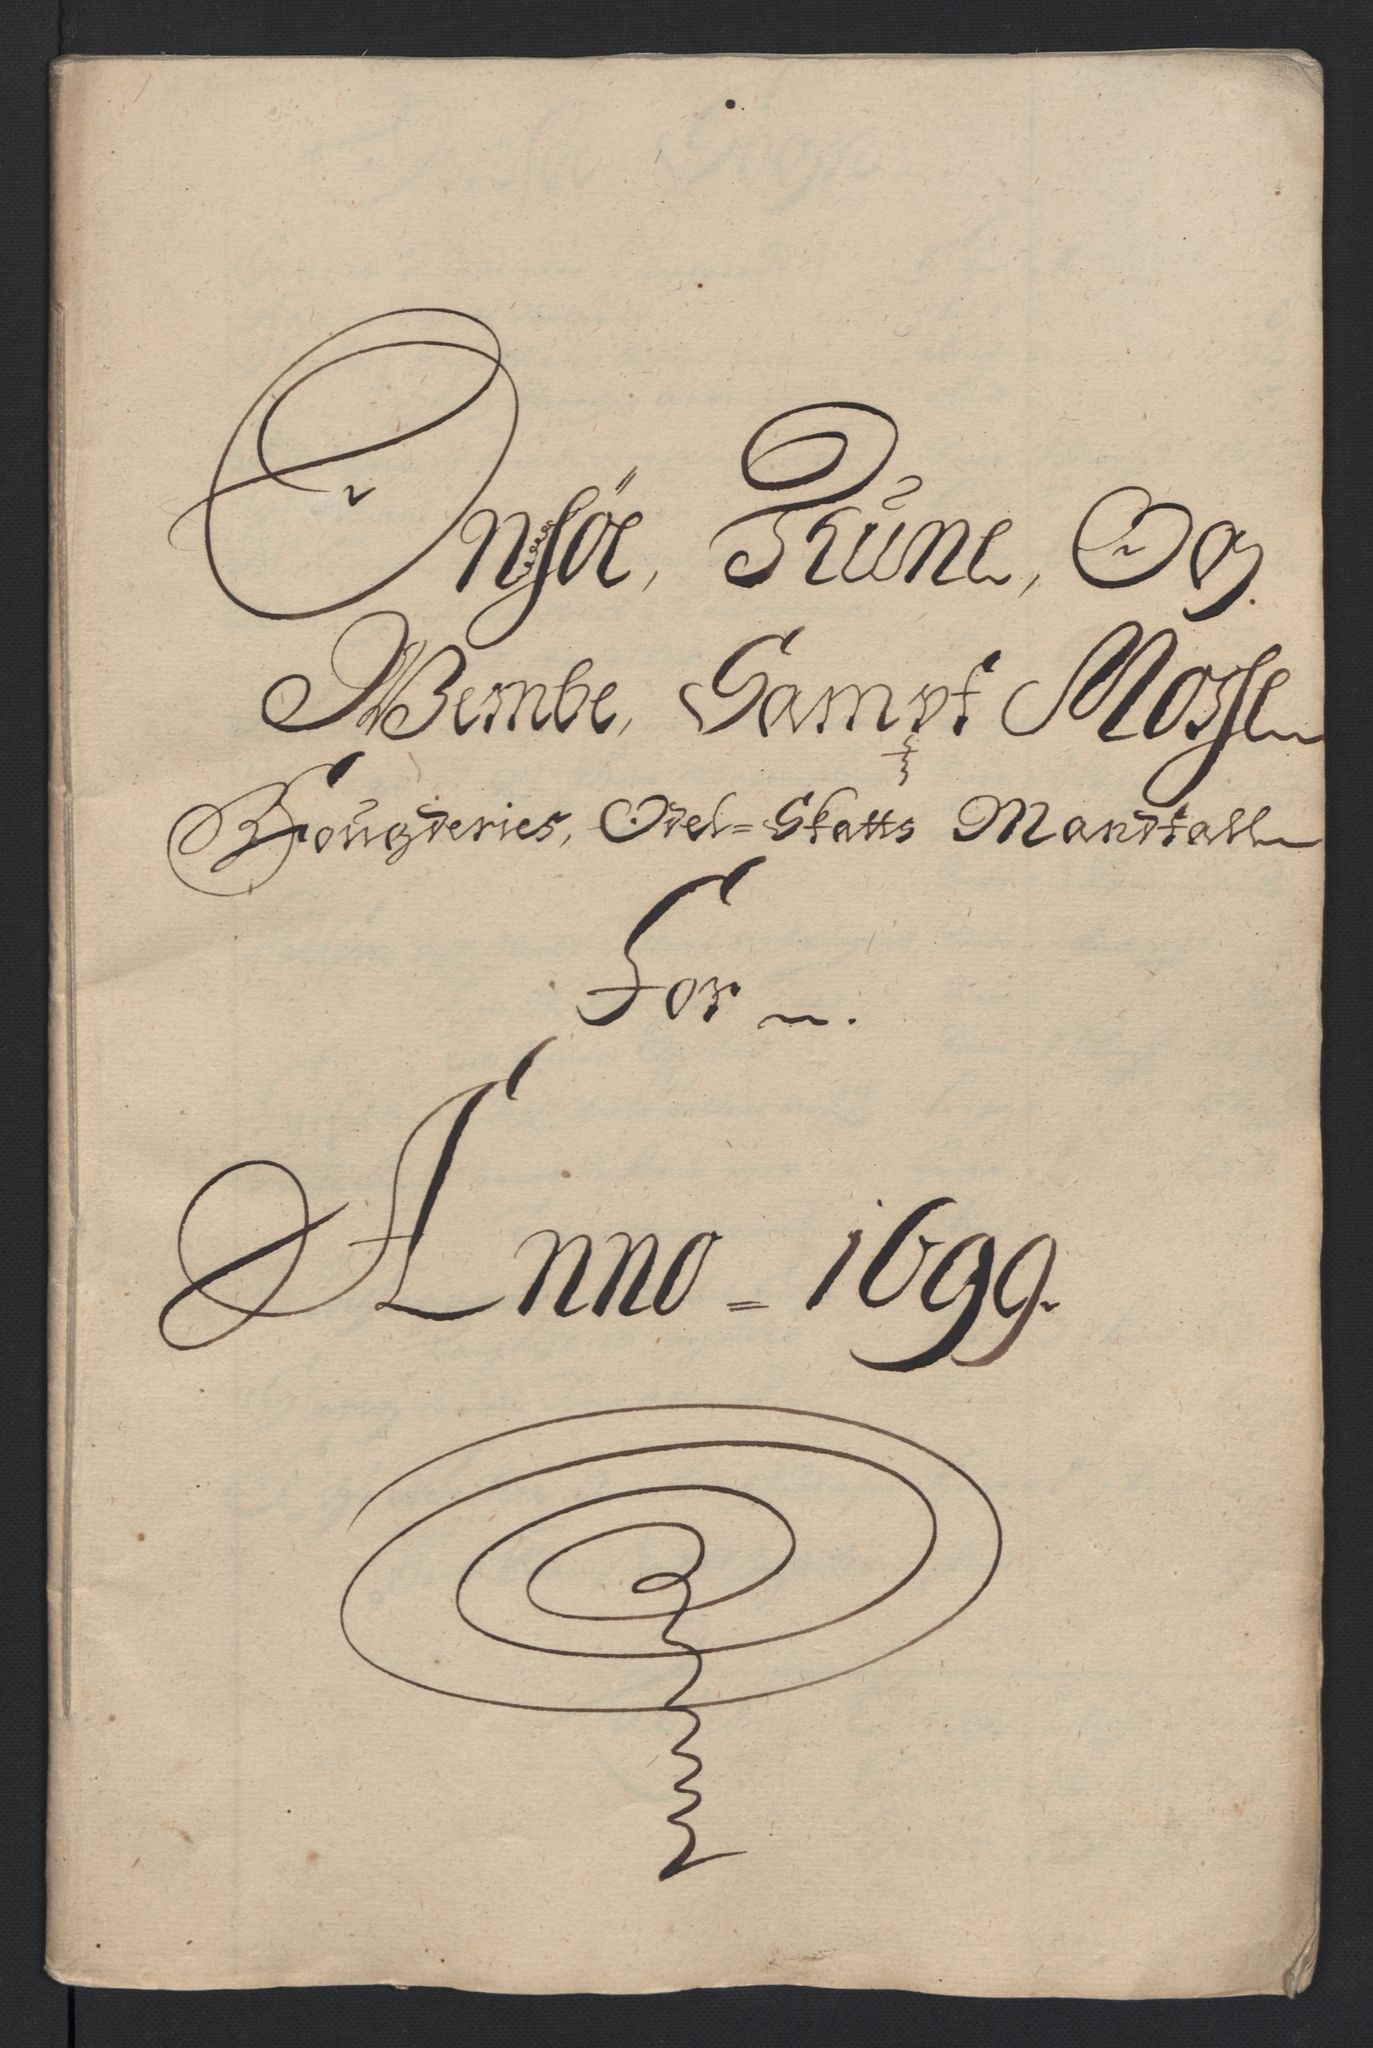 Onsöe, Thune, Og
Wembe, Sampt Mosse
Fougderies, Odel=Skatts Mandtall
For
Anno = 1699.